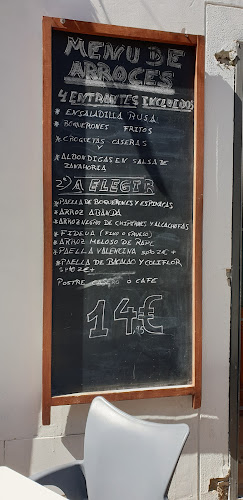 MENU DE
ARROCES
4 ENTRANTES INCLUIDOS
* ENSALADILLA RUSA
* BOQUERONES FRITOS
* CROQUETAS CASERAS
Y
* ALBONDIGAS EN SALSA DE
ZANAHORIA
2º A ELEGIR
* PAELLA DE BOQUERONES Y ESPINACAS
* ARROZ ABANDA
* ARROZ NEGRO DE CHIPIRONES Y ALCACHOFAS
* FIDEUA (FINO O GRUESO)
* ARROZ MELOSO DE RAPE
* PAELLA VALENCIANA SPTO 2€ +
* PAELLA DE BACALAO Y COLIFLOR
SPTO 2€ +
POSTRE CASERO O CAFE
14€